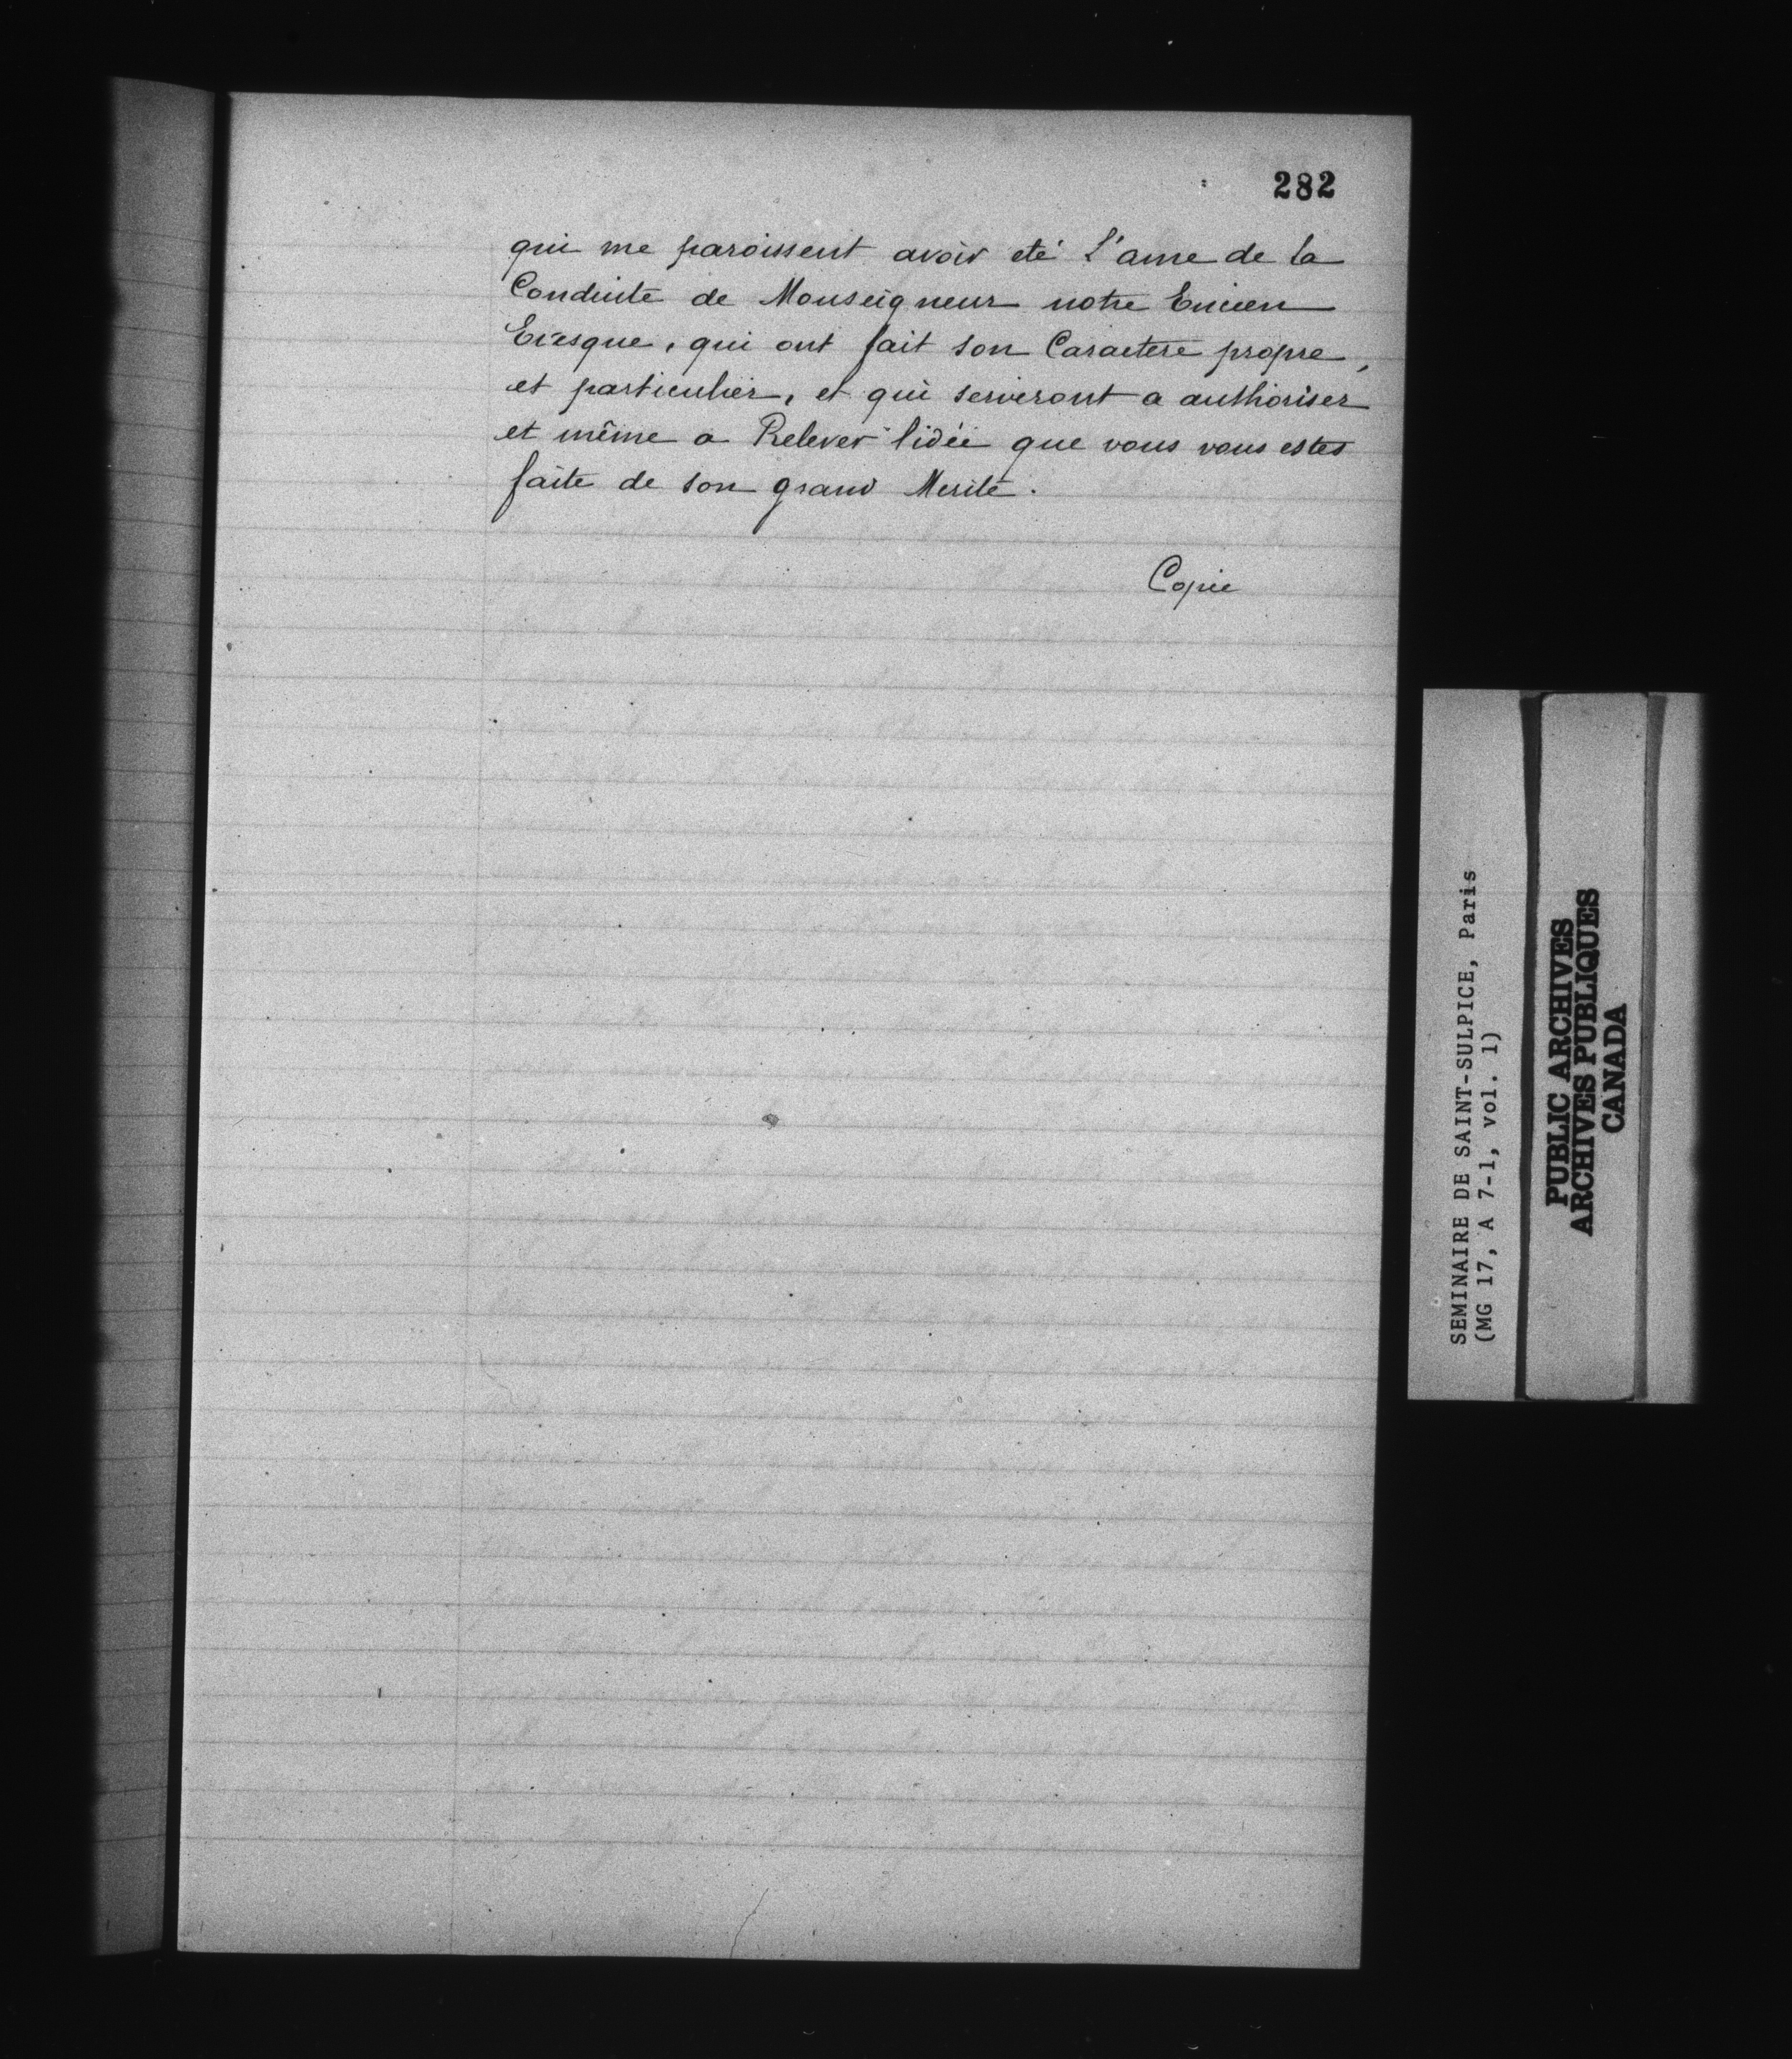 282
qui me paroissent avoir eté l'ame de la
Conduite de Monseigneur notre Encien
Evesque, qui ont fait son Caractere propre,
et particulier, et qui serviront a authoriser
et même a Relever lidée que vous vous estes
faite de son grand Merite.
Copie
SEMINAIRE DE SAINT-SULPICE, Paris
(MG 17, A 7-1, vol. 1)
PUBLIC ARCHIVES
ARCHIVES PUBLIQUES
CANADA